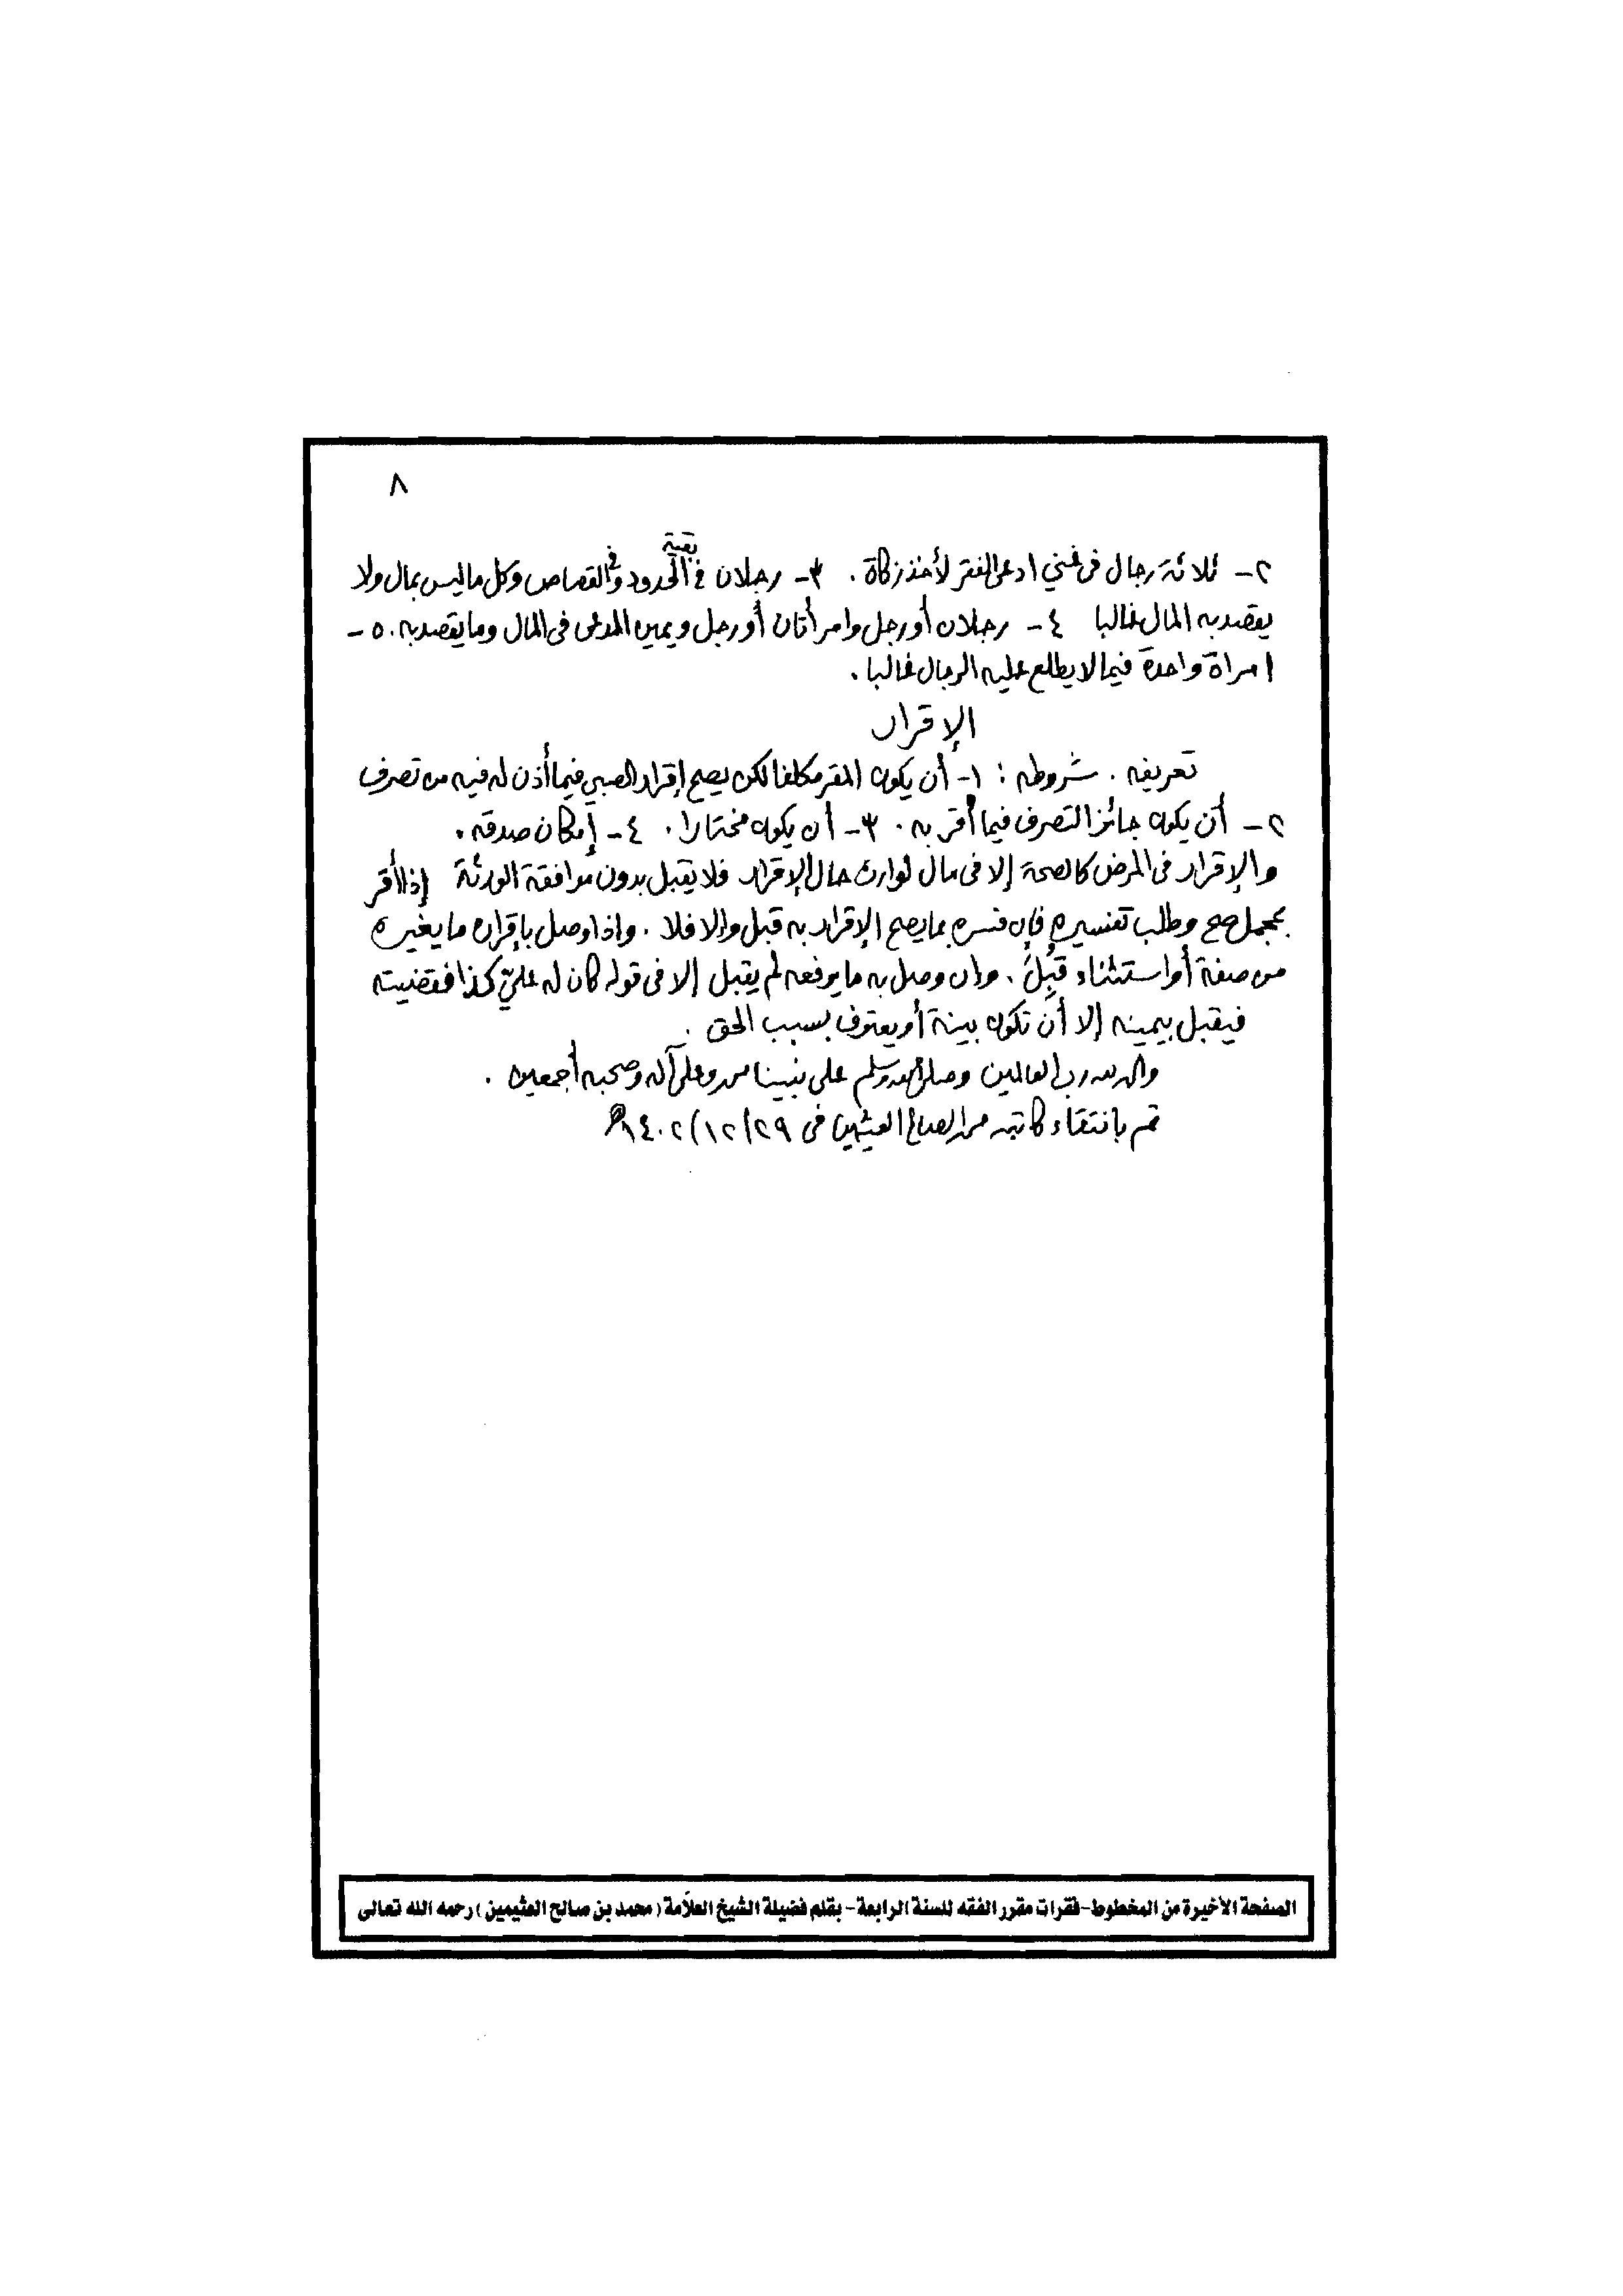 ٨
٢- ثلاثة رجال في غني ادعى الفقر لأخذ زكاة . ٣- رجلان في بقية الحدود وفي القصاص وكل ما ليس بمال ولا
يقصد به المال غالبا ٤- رجلان أو رجل وامرأتان أو رجل ويمين المدعي في المال وما يقصد به . ٥-
امرأة واحدة فيما لا يطلع عليه الرجال غالبا .
الإقرار
تعريفه . شروطه : ١- أن يكون المقر مكلفا لكن يصح إقرار الصبي فيما أذن له فيه من تصرف
٢- أن يكون جائز التصرف فيما أقر به . ٣- أن يكون مختارا . ٤- إمكان صدقه .
والإقرار في المرض كالصحة إلا في مال لوارث حال الإقرار فلا يقبل بدون موافقة الورثة إذا أقر
بمجمل صح وطلب تفسيره فإن فسره بما يصح الإقرار به قبل وإلا فلا . وإذا وصل بإقراره ما يغيره
من صفة أو استثناء قُبِلَ . وإن وصل به ما يرفعه لم يقبل إلا في قوله كان له عليّ كذا فقضيته
فيقبل بيمينه إلا أن تكون بينة أو يعترف بسبب الحق .
والحمد لله رب العالمين وصلى الله وسلم على نبينا محمد وعلى آله وصحبه أجمعين .
تم بانتقاء كاتبه محمد الصالح العثيمين في ٢٩/١٢/١٤٠٢هـ
الصفحة الأخيرة من المخطوط-فقرات مقرر الفقه للسنة الرابعة- بقلم فضيلة الشيخ العلاّمة (محمد بن صالح العثيمين) رحمه الله تعالى